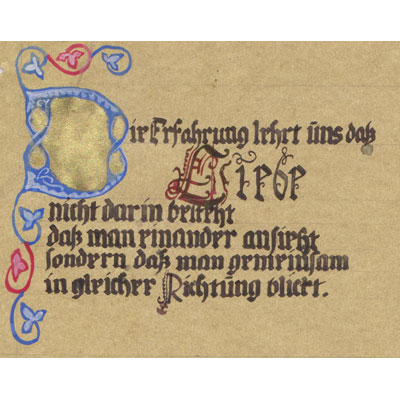 Die Erfahrung lehrt uns daß
Liebe
nicht darin besteht
daß man einander ansieht
sondern daß man gemeinsam
in gleicher Richtung blickt.